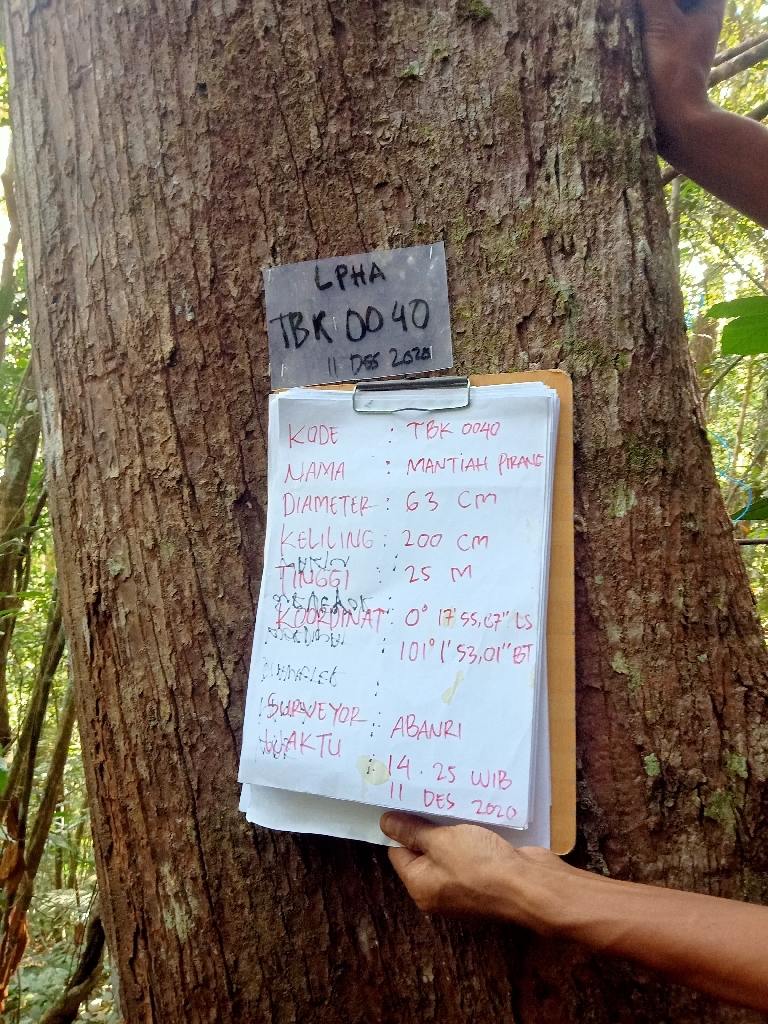 LPHA
TBK 0040
11 DES 2020
KODE : TBK 0040
NAMA : MANTIAH PIRANG
DIAMETER : 63 CM
KELILING : 200 CM
TINGGI : 25 M
KOORDINAT : 0° 17' 55,67" LS
101° 1' 53,01" BT
SURVEYOR : ABANRI
WAKTU : 14.25 WIB
11 DES 2020